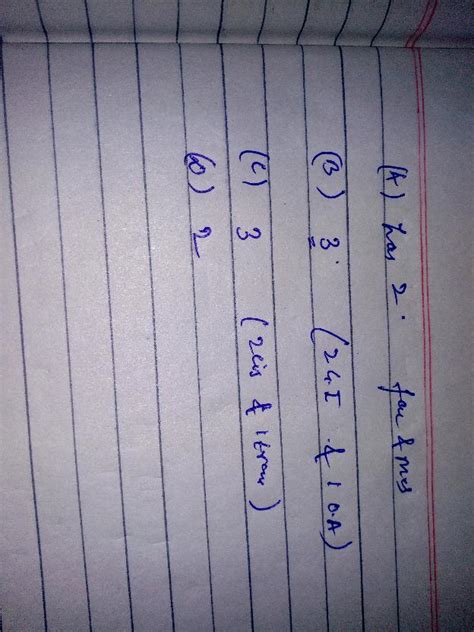 (A) has 2. fac & mer
(B) 3. (2 G.I & 1 O.A)
(C) 3 (2 cis & 1 trans)
(D) 2